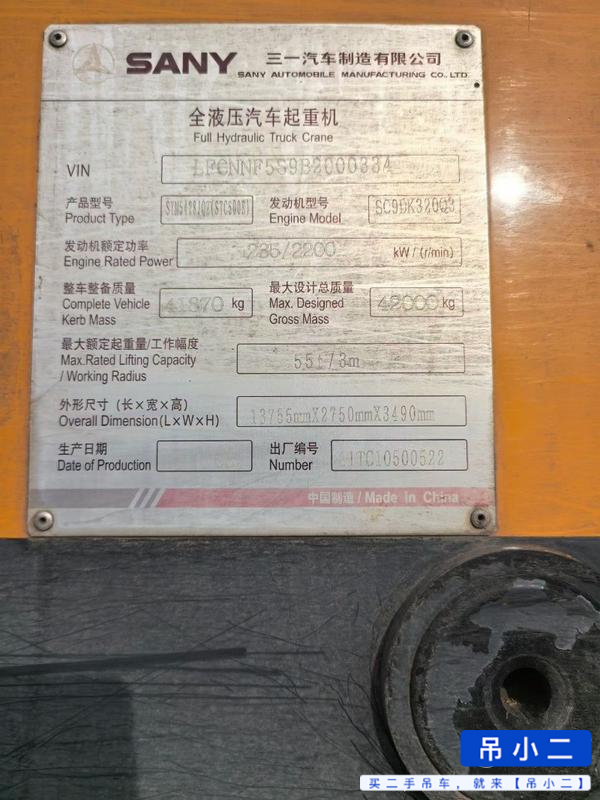 SANY 三一汽车制造有限公司
SANY AUTOMOBILE MANUFACTURING CO., LTD
全液压汽车起重机
Full Hydraulic Truck Crane
VIN LFCNNF5S9B2000334
产品型号 发动机型号
Product Type Engine Model SC9DK320Q3
发动机额定功率
Engine Rated Power 235/2200 kW / (r/min)
整车整备质量 最大设计总质量
Complete Vehicle Kerb Mass 41870 kg Max. Designed Gross Mass 42000 kg
最大额定起重量/工作幅度
Max.Rated Lifting Capacity 55t/3m
/ Working Radius
外形尺寸（长×宽×高）
Overall Dimension(L×W×H) 13765mmX2750mmX3490mm
生产日期 出厂编号
Date of Production Number 11TC10500522
中国制造 / Made in China
吊小二
买二手吊车，就来【吊小二】